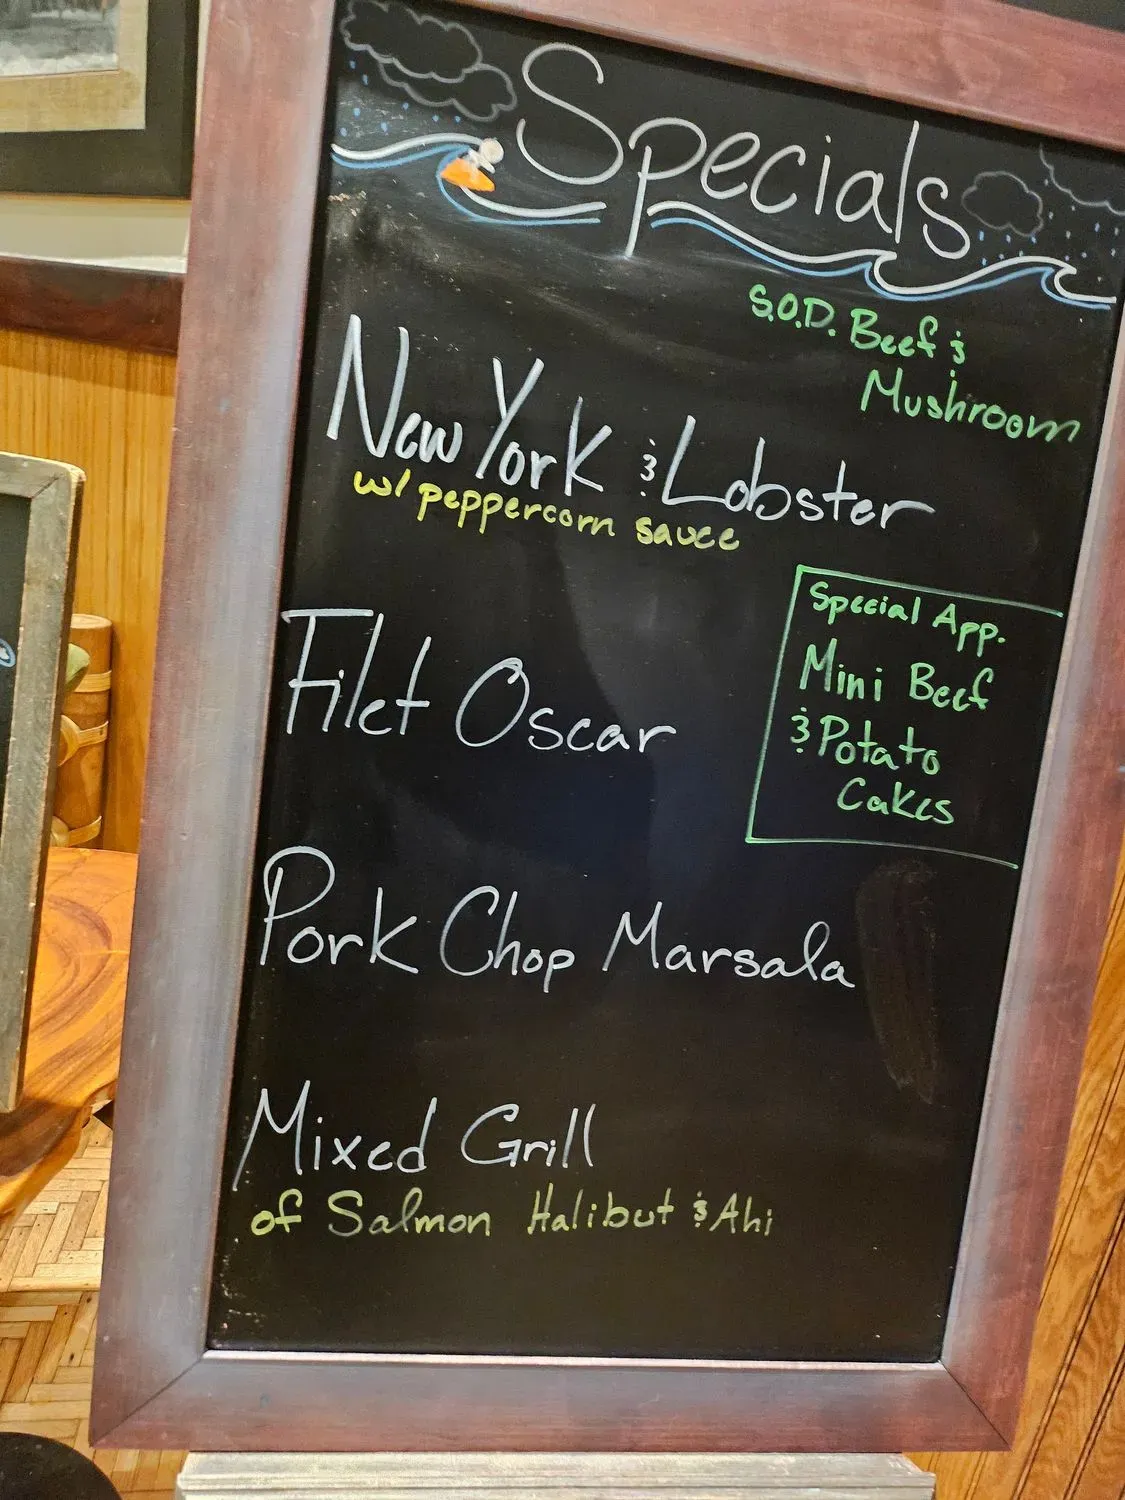 Specials
S.O.D. Beef &
Mushroom
New York & Lobster
w/ peppercorn sauce
Special App.
Mini Beef
& Potato
Cakes
Filet Oscar
Pork Chop Marsala
Mixed Grill
of Salmon Halibut & Ahi